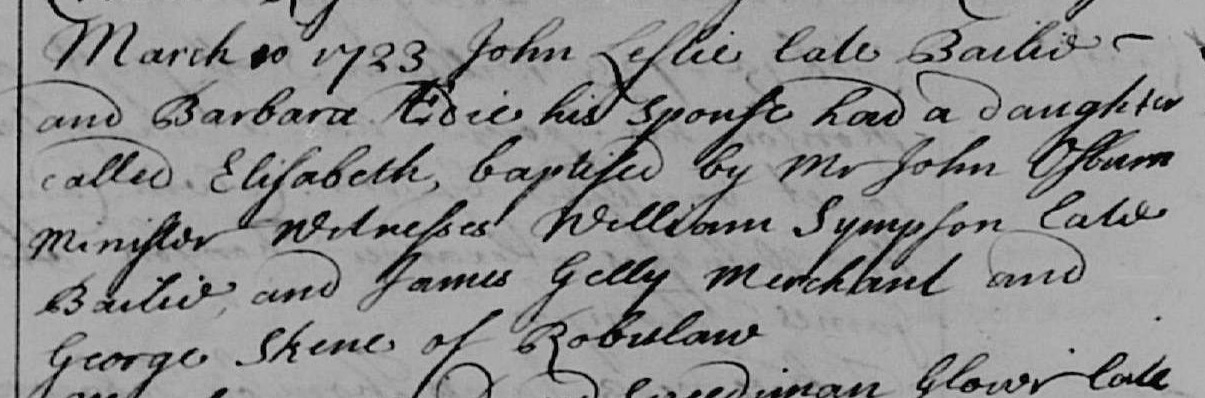 March 10 1723 John Leslie late Bailie
and Barbara Edie his spouse had a daughter
called Elisabeth, baptised by Mr John Osburn
Minister Witnesses William Sympson late
Bailie, and James Gelly Merchant and
George Skene of Robslaw
Glover late